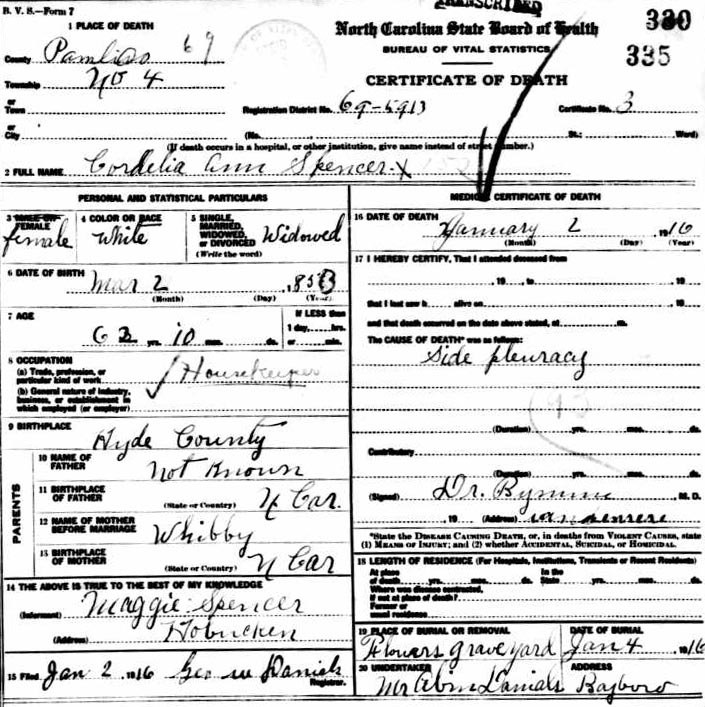 B. V. S.—Form 7
TRANSCRIBED
1 PLACE OF DEATH
North Carolina State Board of Health
330
335
BUREAU OF VITAL STATISTICS
County Pamlico 69
CERTIFICATE OF DEATH
Township No 4
or
Town
Registration District No. 69-5913
Certificate No. 3
or
City
(No. St.: Ward)
(If death occurs in a hospital, or other institution, give name instead of street number.)
2 FULL NAME Cordelia Ann Spencer. X
PERSONAL AND STATISTICAL PARTICULARS
3 MALE OR FEMALE female
4 COLOR OR RACE White
5 SINGLE, MARRIED, WIDOWED, or DIVORCED Widowed
(Write the word)
6 DATE OF BIRTH Mar 2
(Month) (Day) (Year)
7 AGE
IF LESS than
1 day, hrs.
yrs. 10 mos. ds. or min.
8 OCCUPATION
(a) Trade, profession, or particular kind of work Housekeeper
(b) General nature of industry, business, or establishment in which employed (or employer)
9 BIRTHPLACE Hyde County
PARENTS
10 NAME OF FATHER Not Known
11 BIRTHPLACE OF FATHER N Car.
(State or Country)
12 NAME OF MOTHER BEFORE MARRIAGE Whibby
13 BIRTHPLACE OF MOTHER N Car
(State or Country)
14 THE ABOVE IS TRUE TO THE BEST OF MY KNOWLEDGE
(Informant) Maggie Spencer
(Address) Hobucken
15 Filed Jan 2 1916 Geo W Daniels
Registrar.
MEDICAL CERTIFICATE OF DEATH
16 DATE OF DEATH January 2 1916
(Month) (Day) (Year)
17 I HEREBY CERTIFY, That I attended deceased from
, 19 , to , 19
that I last saw h alive on , 19
and that death occurred on the date above stated, at m.
The CAUSE OF DEATH* was as follows:
Side pleuracy
(Duration) yrs. mos. ds.
Contributory
(Duration) yrs. mos. ds.
(Signed) Dr. M. D.
, 19 (Address)
*State the DISEASE CAUSING DEATH, or, in deaths from VIOLENT CAUSES, state
(1) MEANS OF INJURY; and (2) whether ACCIDENTAL, SUICIDAL, or HOMICIDAL.
18 LENGTH OF RESIDENCE (For Hospitals, Institutions, Transients or Recent Residents)
At place of death yrs. mos. ds. In the State yrs. mos. ds.
Where was disease contracted,
If not at place of death?
Former or
usual residence
19 PLACE OF BURIAL OR REMOVAL
DATE OF BURIAL
Flowers graveyard Jan 4 1916
20 UNDERTAKER
ADDRESS
Mr Daniels